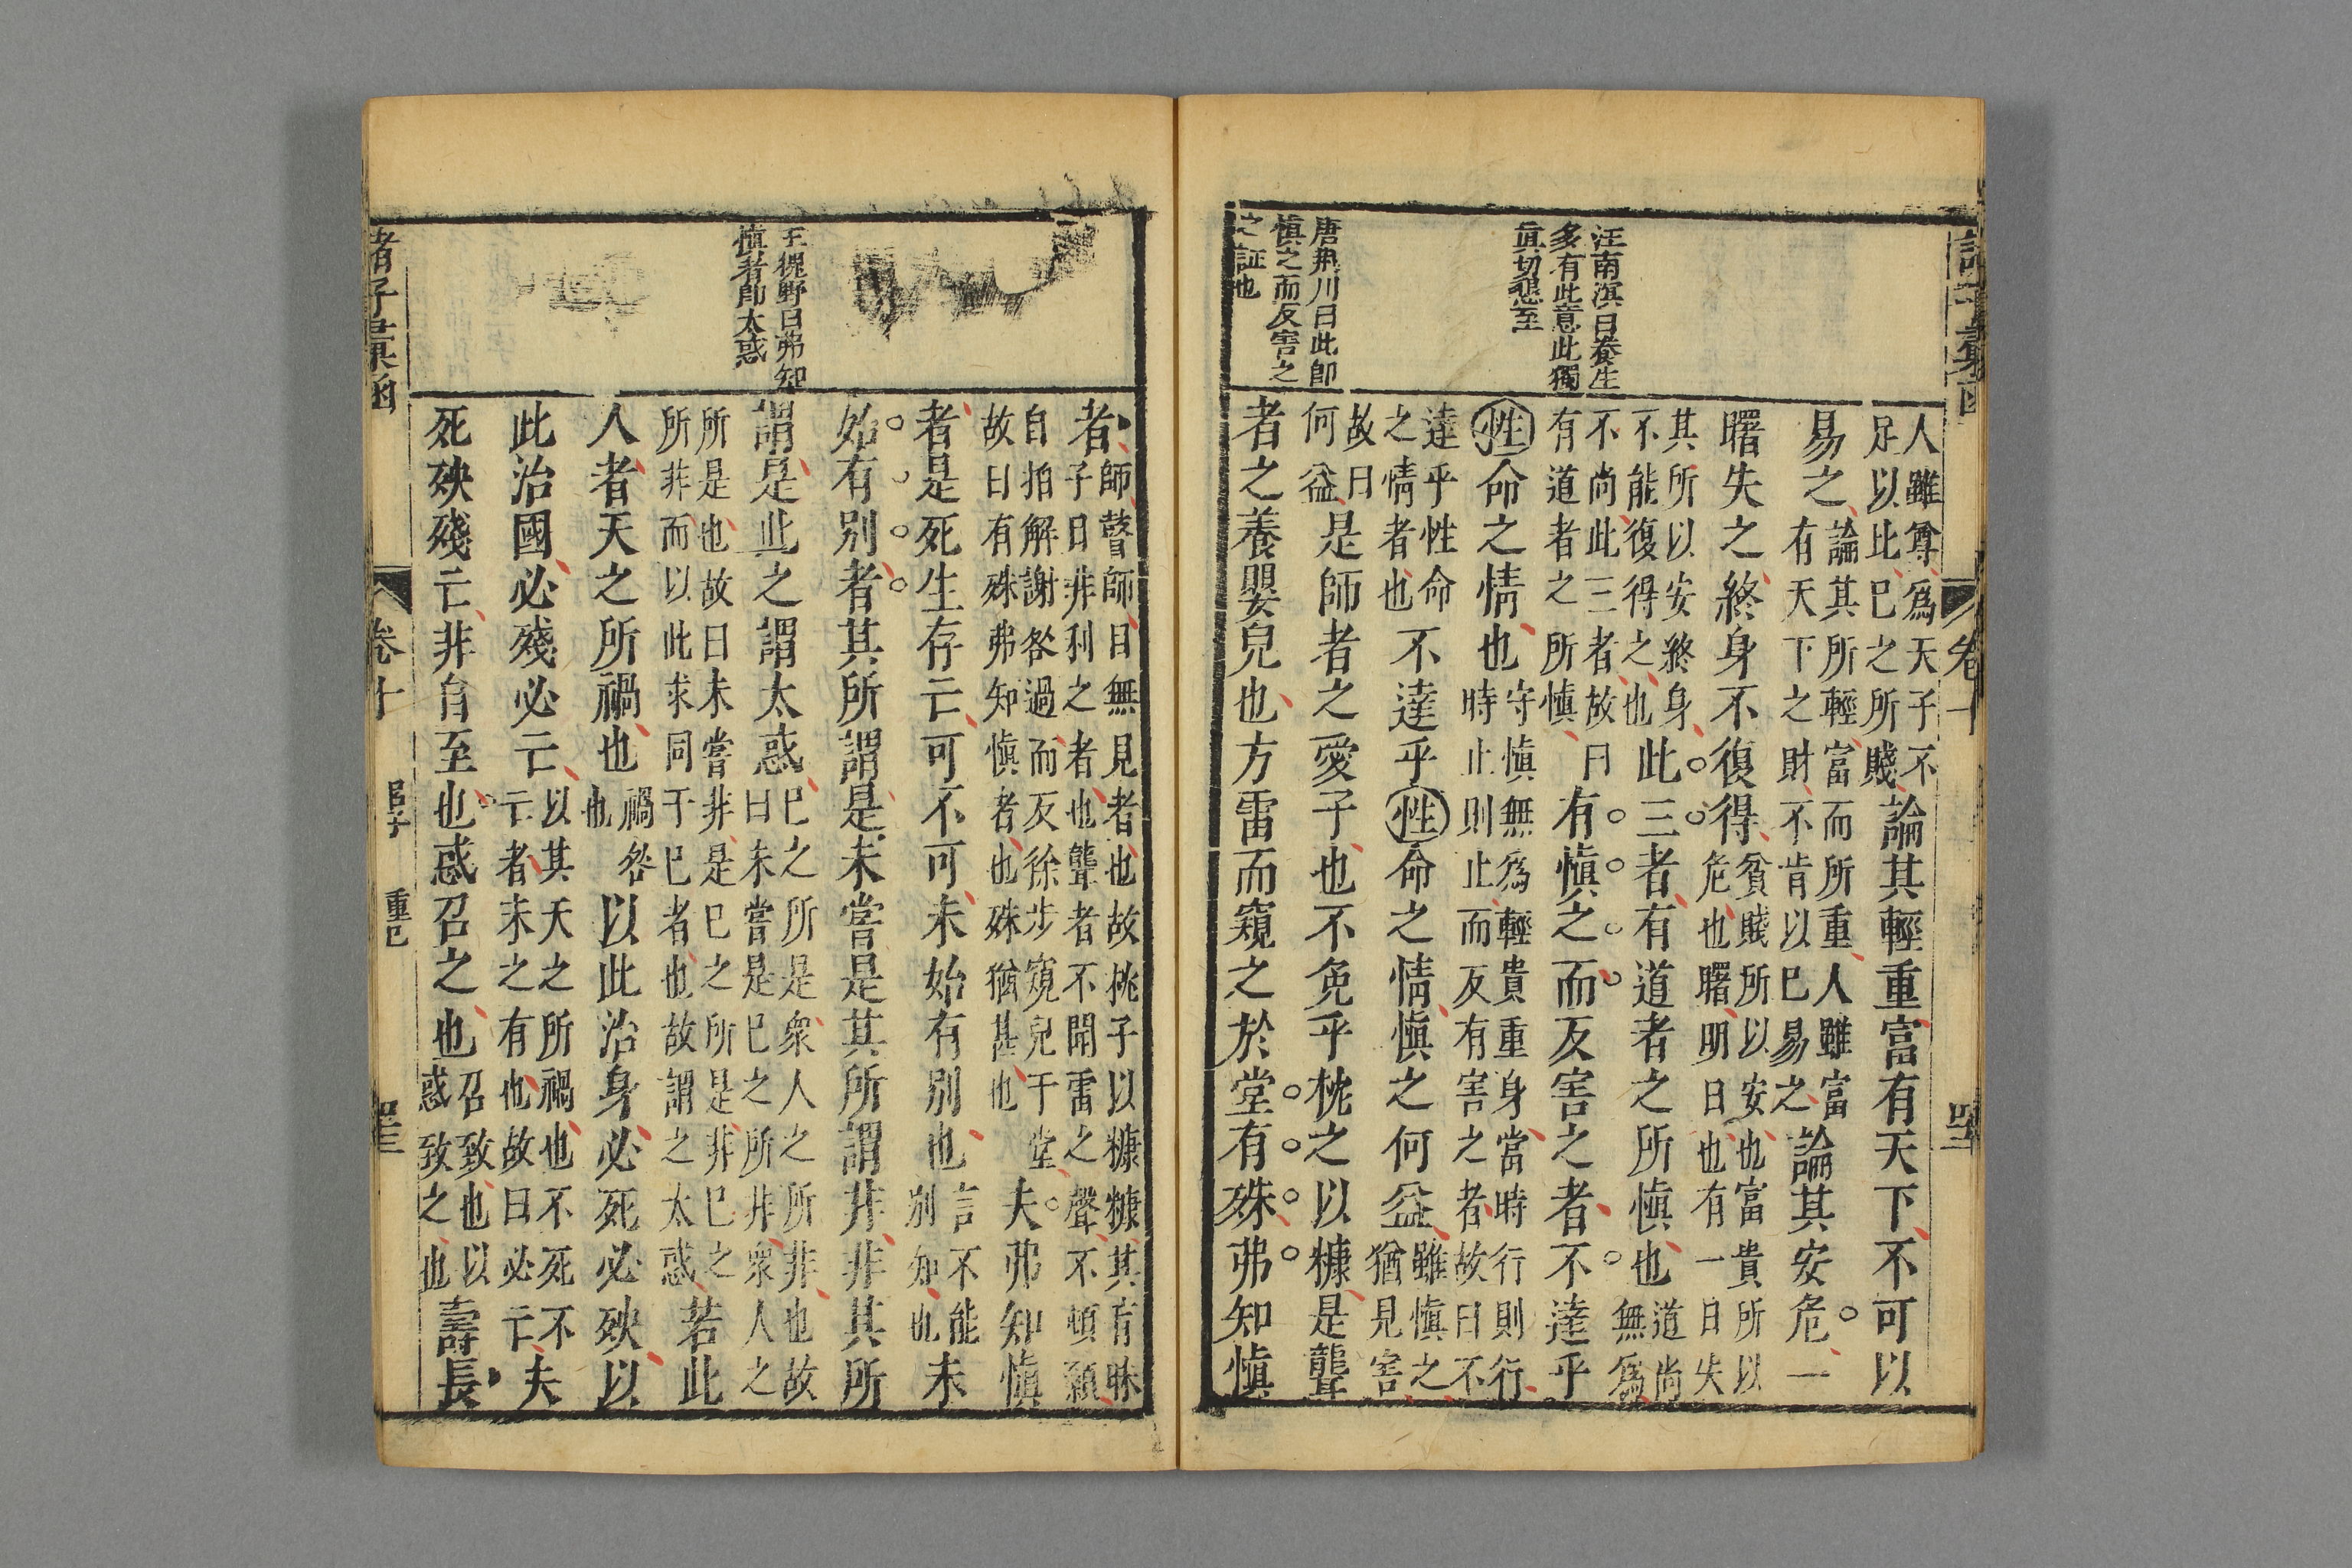 諸子彙函
卷十
汪南溟曰養生
多有此意此獨
眞切懇至
唐荊川曰此卽
愼之而反害之
之証也
人雖尊爲天子不
足以比己之所賤
論其輕重富有天下不可以
易之
論其所輕富而所重人雖富
有天下之財不肯以己易之
論其安危一
曙失之終身不復得
貧賤所以安也富貴所以
危也曙明日也有一日失
其所以安終身
不能復得之也
此三者有道者之所愼也
道尚
無爲
不尚此三者故曰
有道者之所愼
有愼之而反害之者不達乎
性命之情也
守愼無爲輕貴重身當時行則行
時止則止而反有害之者故曰不
達乎性命
之情者也
不達乎性命之情愼之何益
雖愼之
猶見害
故曰
何益
是師者之愛子也不免乎枕之以糠是聾
者之養嬰兒也方雷而窺之於堂有殊弗知愼
王槐野曰弗知
愼者卽太惑
者
師瞽師目無見者也故桃子以糠糠其肓眯
子曰非利之者也聾者不聞雷之聲不頓顙
自拍解謝咎過而反徐步窺兒于堂
故曰有殊弗知愼者也殊猶甚也
夫弗知愼
者是死生存亡可不可未始有別也
言不能
別知也
未
始有別者其所謂是未嘗是其所謂非非其所
謂是此之謂太惑
己之所是衆人之所非也故
曰未嘗是己之所非衆人之
所是也故曰未嘗非是己之所是非己之
所非而以此求同于己者也故謂之太惑
若此
人者天之所禍也
禍咎
也
以此治身必死必殃以
此治國必殘必亡
以其天之所禍也不死不
亡者未之有也故曰必亡
夫
死殃殘亡非自至也惑召之也
召致也以
惑致之也
壽長
諸子彙函
卷十
重己